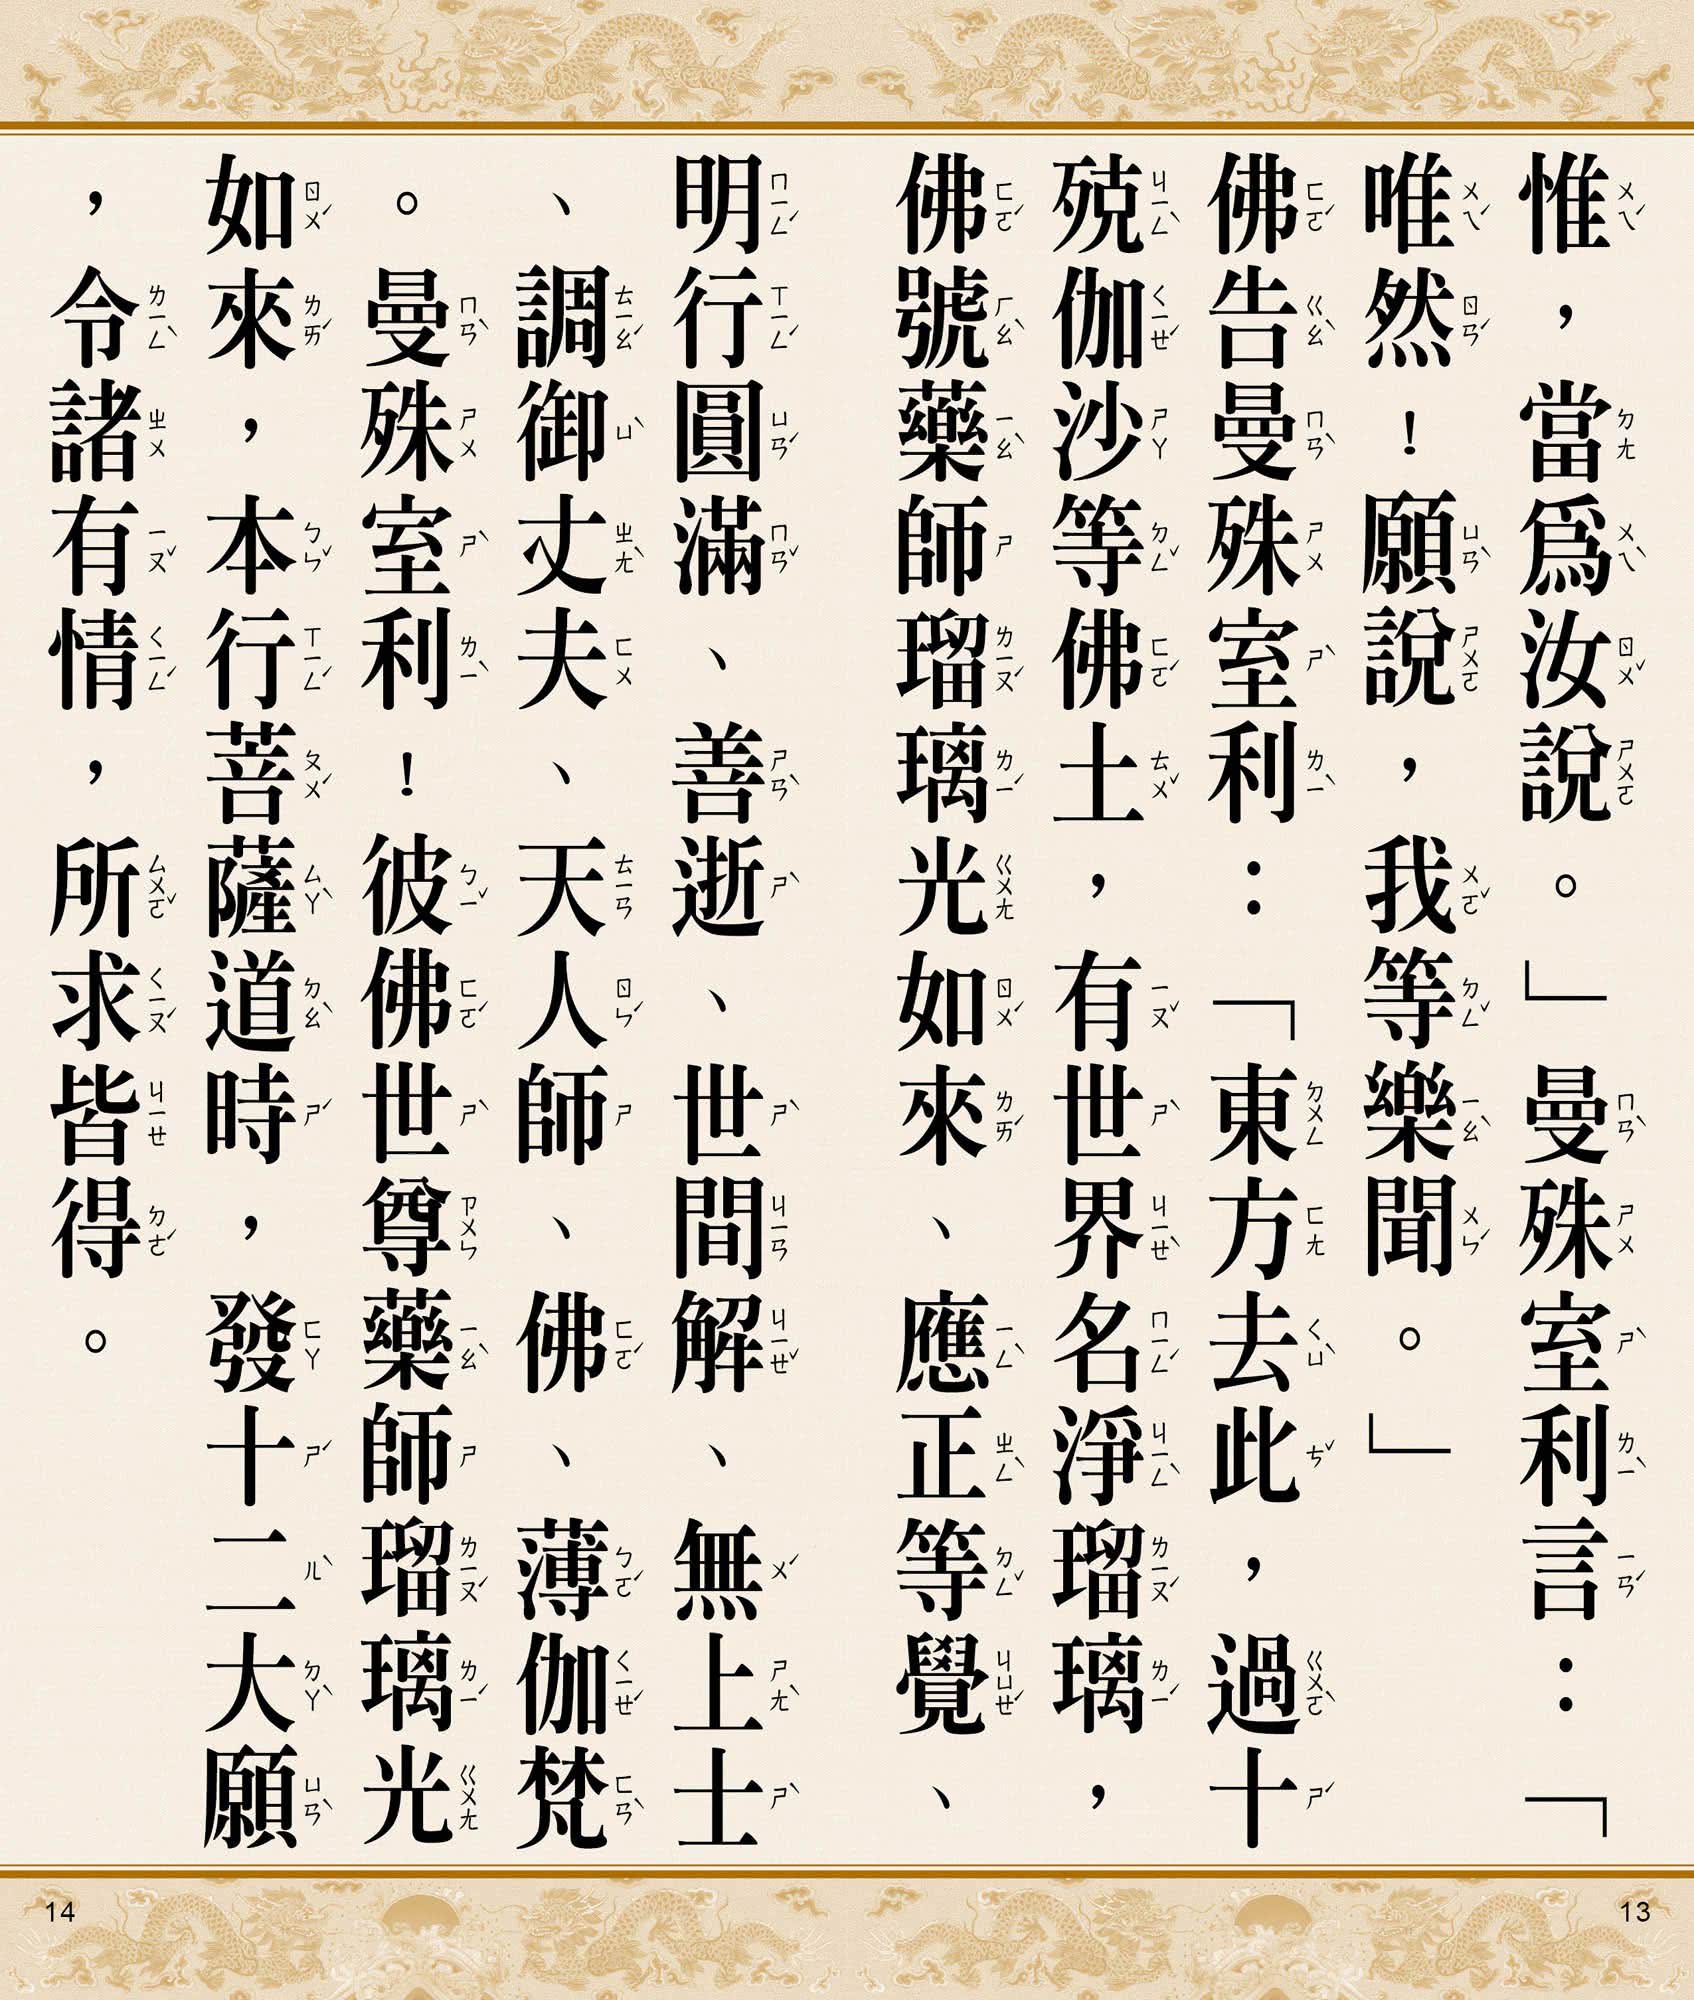 惟，當爲汝說。」曼殊室利言：「
唯然！願說，我等樂聞。」
佛告曼殊室利：「東方去此，過十
殑伽沙等佛土，有世界名淨瑠璃，
佛號藥師瑠璃光如來、應正等覺、
13
明行圓滿、善逝、世間解、無上士
、調御丈夫、天人師、佛、薄伽梵
。曼殊室利！彼佛世尊藥師瑠璃光
如來，本行菩薩道時，發十二大願
，令諸有情，所求皆得。
14